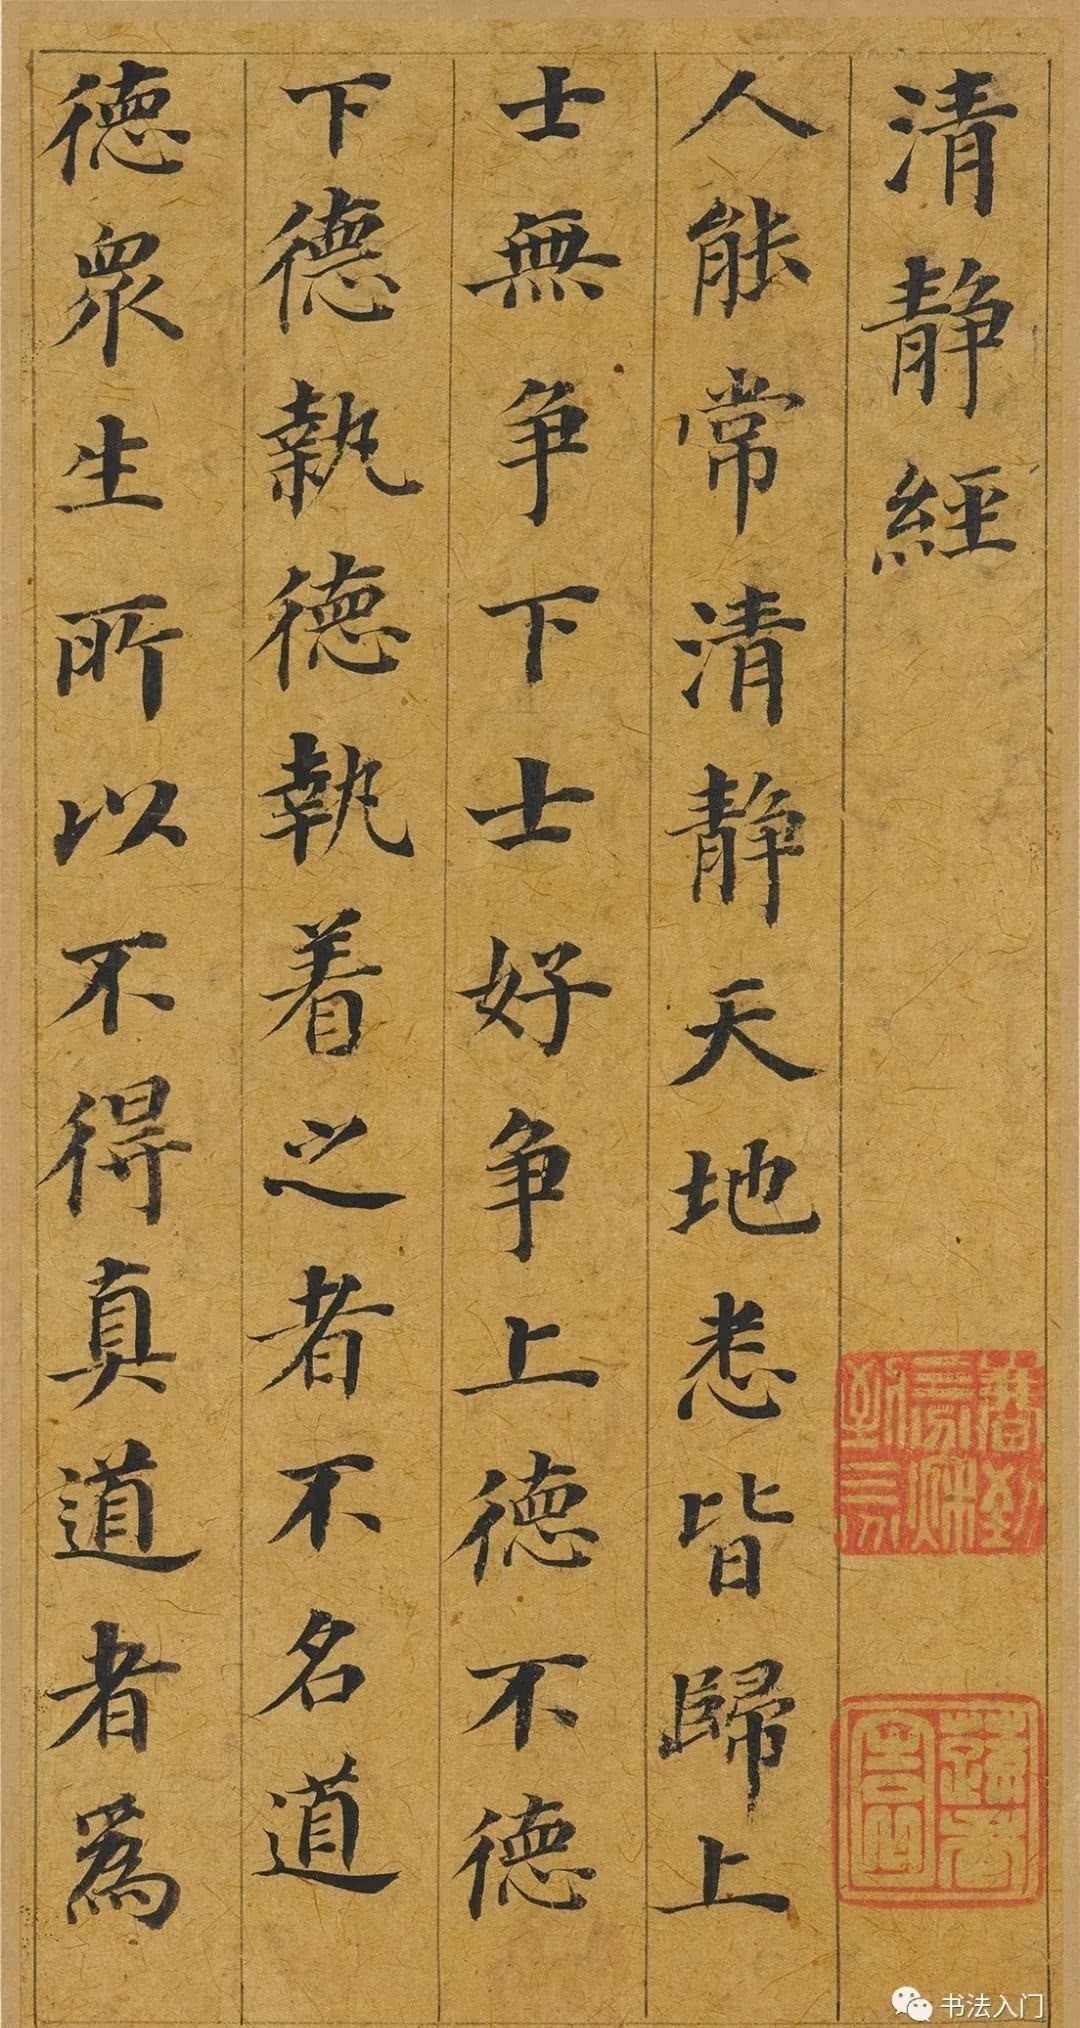 清靜經
人能常清靜天地悉皆歸上
士無争下士好争上德不德
下德執德執着之者不名道
德衆生所以不得真道者爲
书法入门